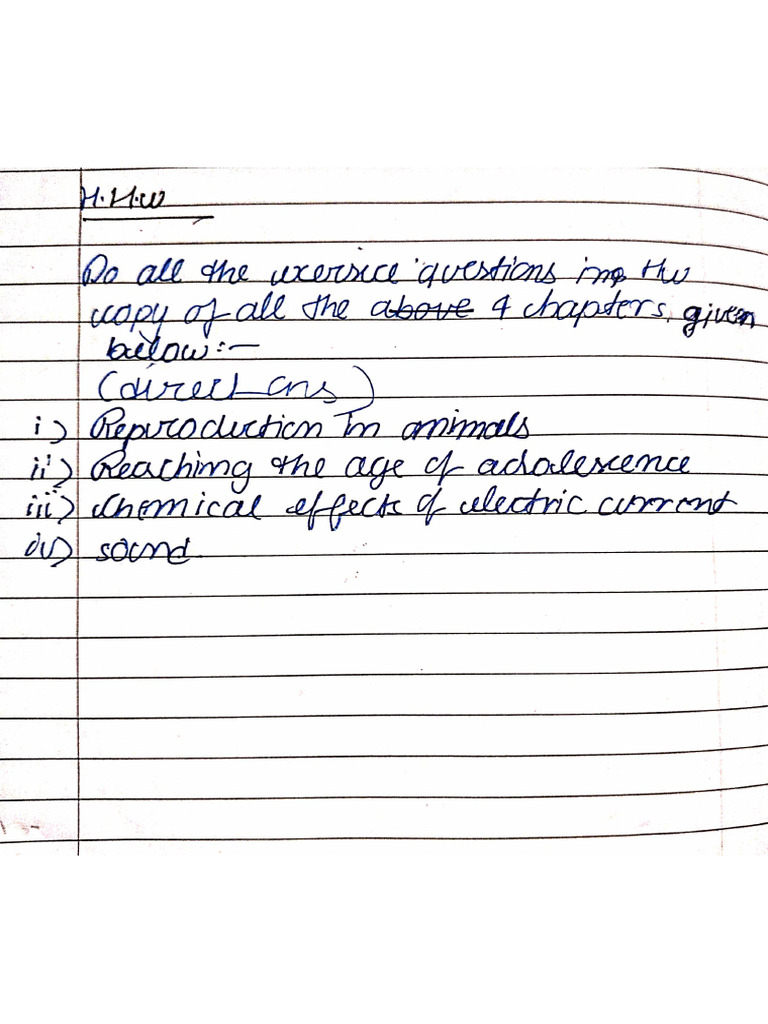 H.H.W
Do all the exersice questions in the
copy of all the above 4 chapters, given
below:-
(direct ans)
i) Reproduction in animals
ii) Reaching the age of adolescence
iii) Chemical effects of electric current
iv) sound